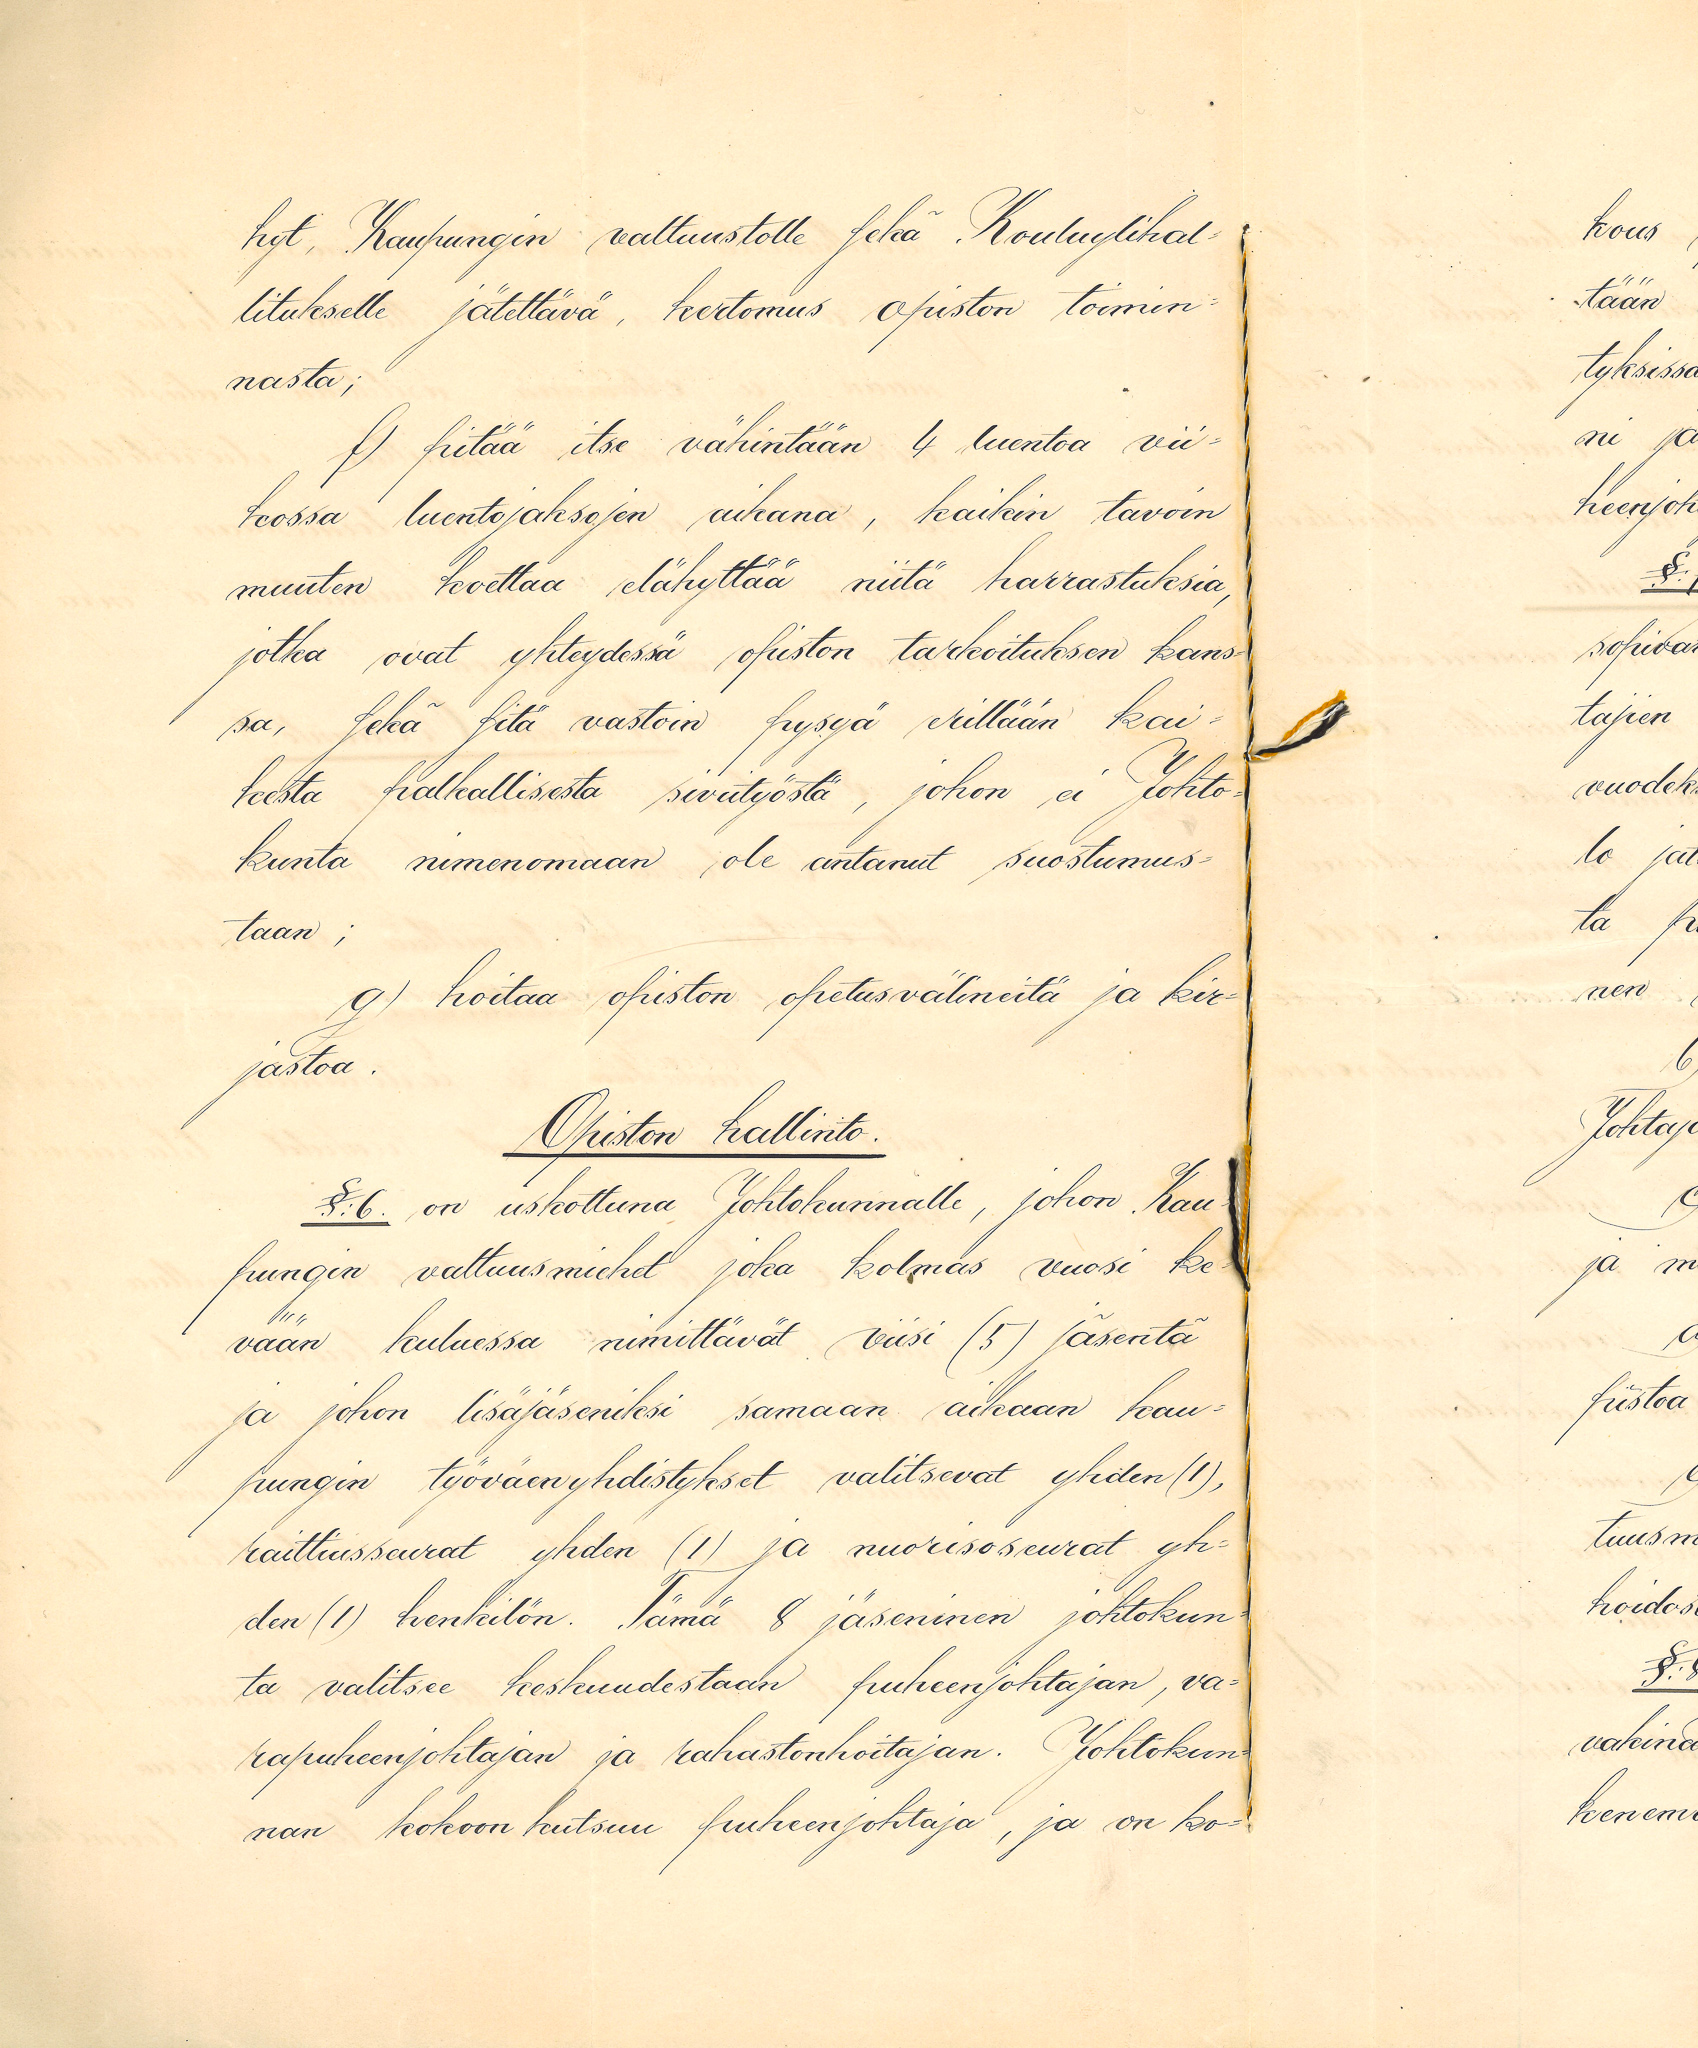 hyt, Kaupungin valtuustolle sekä Kouluylihal=
litukselle jätettävä, kertomus opiston toimin=
nasta;
f) pitää itse vähintään 4 luentoa vii=
kossa luentojaksojen aikana, kaikin tavoin
muuten koettaa elähyttää niitä harrastuksia,
jotka ovat yhteydessä opiston tarkoituksen kans=
sa, sekä sitä vastoin pysyä erillään kai=
kesta palkallisesta sivutyöstä, johon ei Johto=
kunta nimenomaan ole antanut suostumus=
taan;
g) hoitaa opiston opetusvälineitä ja kir=
jastoa.
Opiston hallinto.
§. 6. on uskottuna Johtokunnalle, johon Kau=
pungin valtuusmiehet joka kolmas vuosi ke=
vään kuluessa nimittävät viisi (5) jäsentä
ja johon lisäjäseniksi samaan aikaan kau=
pungin työväenyhdistykset valitsevat yhden (1),
raittiusseurat yhden (1) ja nuorisoseurat yh=
den (1) henkilön. Tämä 8 jäseninen johtokun=
ta valitsee keskuudestaan puheenjohtajan, va=
rapuheenjohtajan ja rahastonhoitajan. Johtokun=
nan kokoon kutsuu puheenjohtaja, ja on ko=
kous
tään
tyksissä
ni jä
heenjoh
§.
sopivan
tajien
vuodeks
lo jät
ta
nen
b)
Johtaja
ja m
piistoa
tuusm
hoidos
§.
vakina
kenem